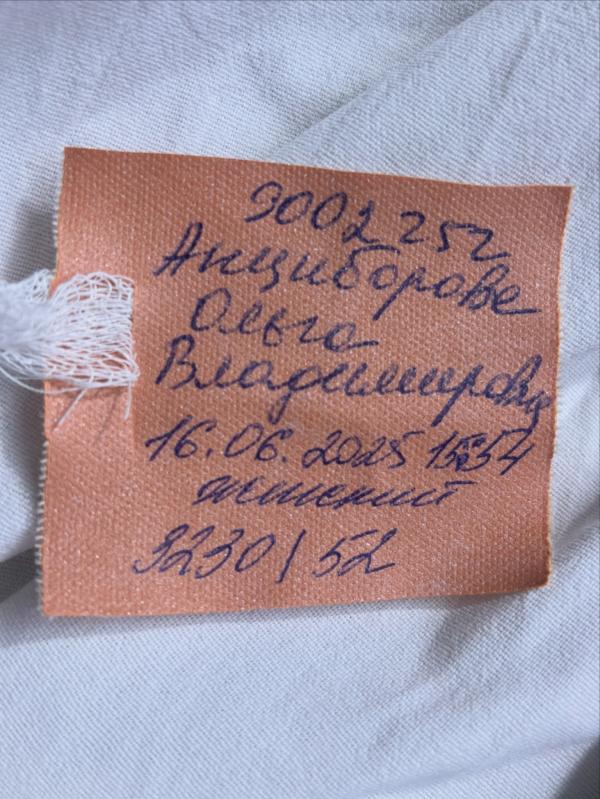 9002252
Анциборове
Ольга
Владимировн
16.06.2025 15:54
женский
3230/52